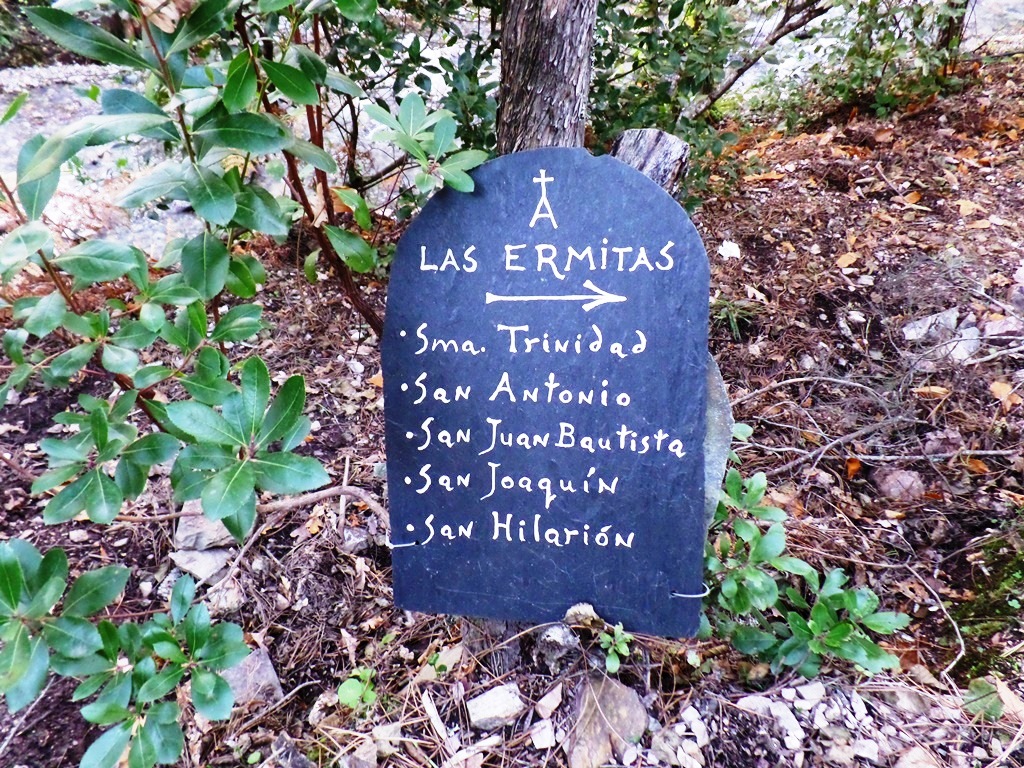 LAS ERMITAS
• Sma. Trinidad
• San Antonio
• San Juan Bautista
• San Joaquín
• San Hilarión